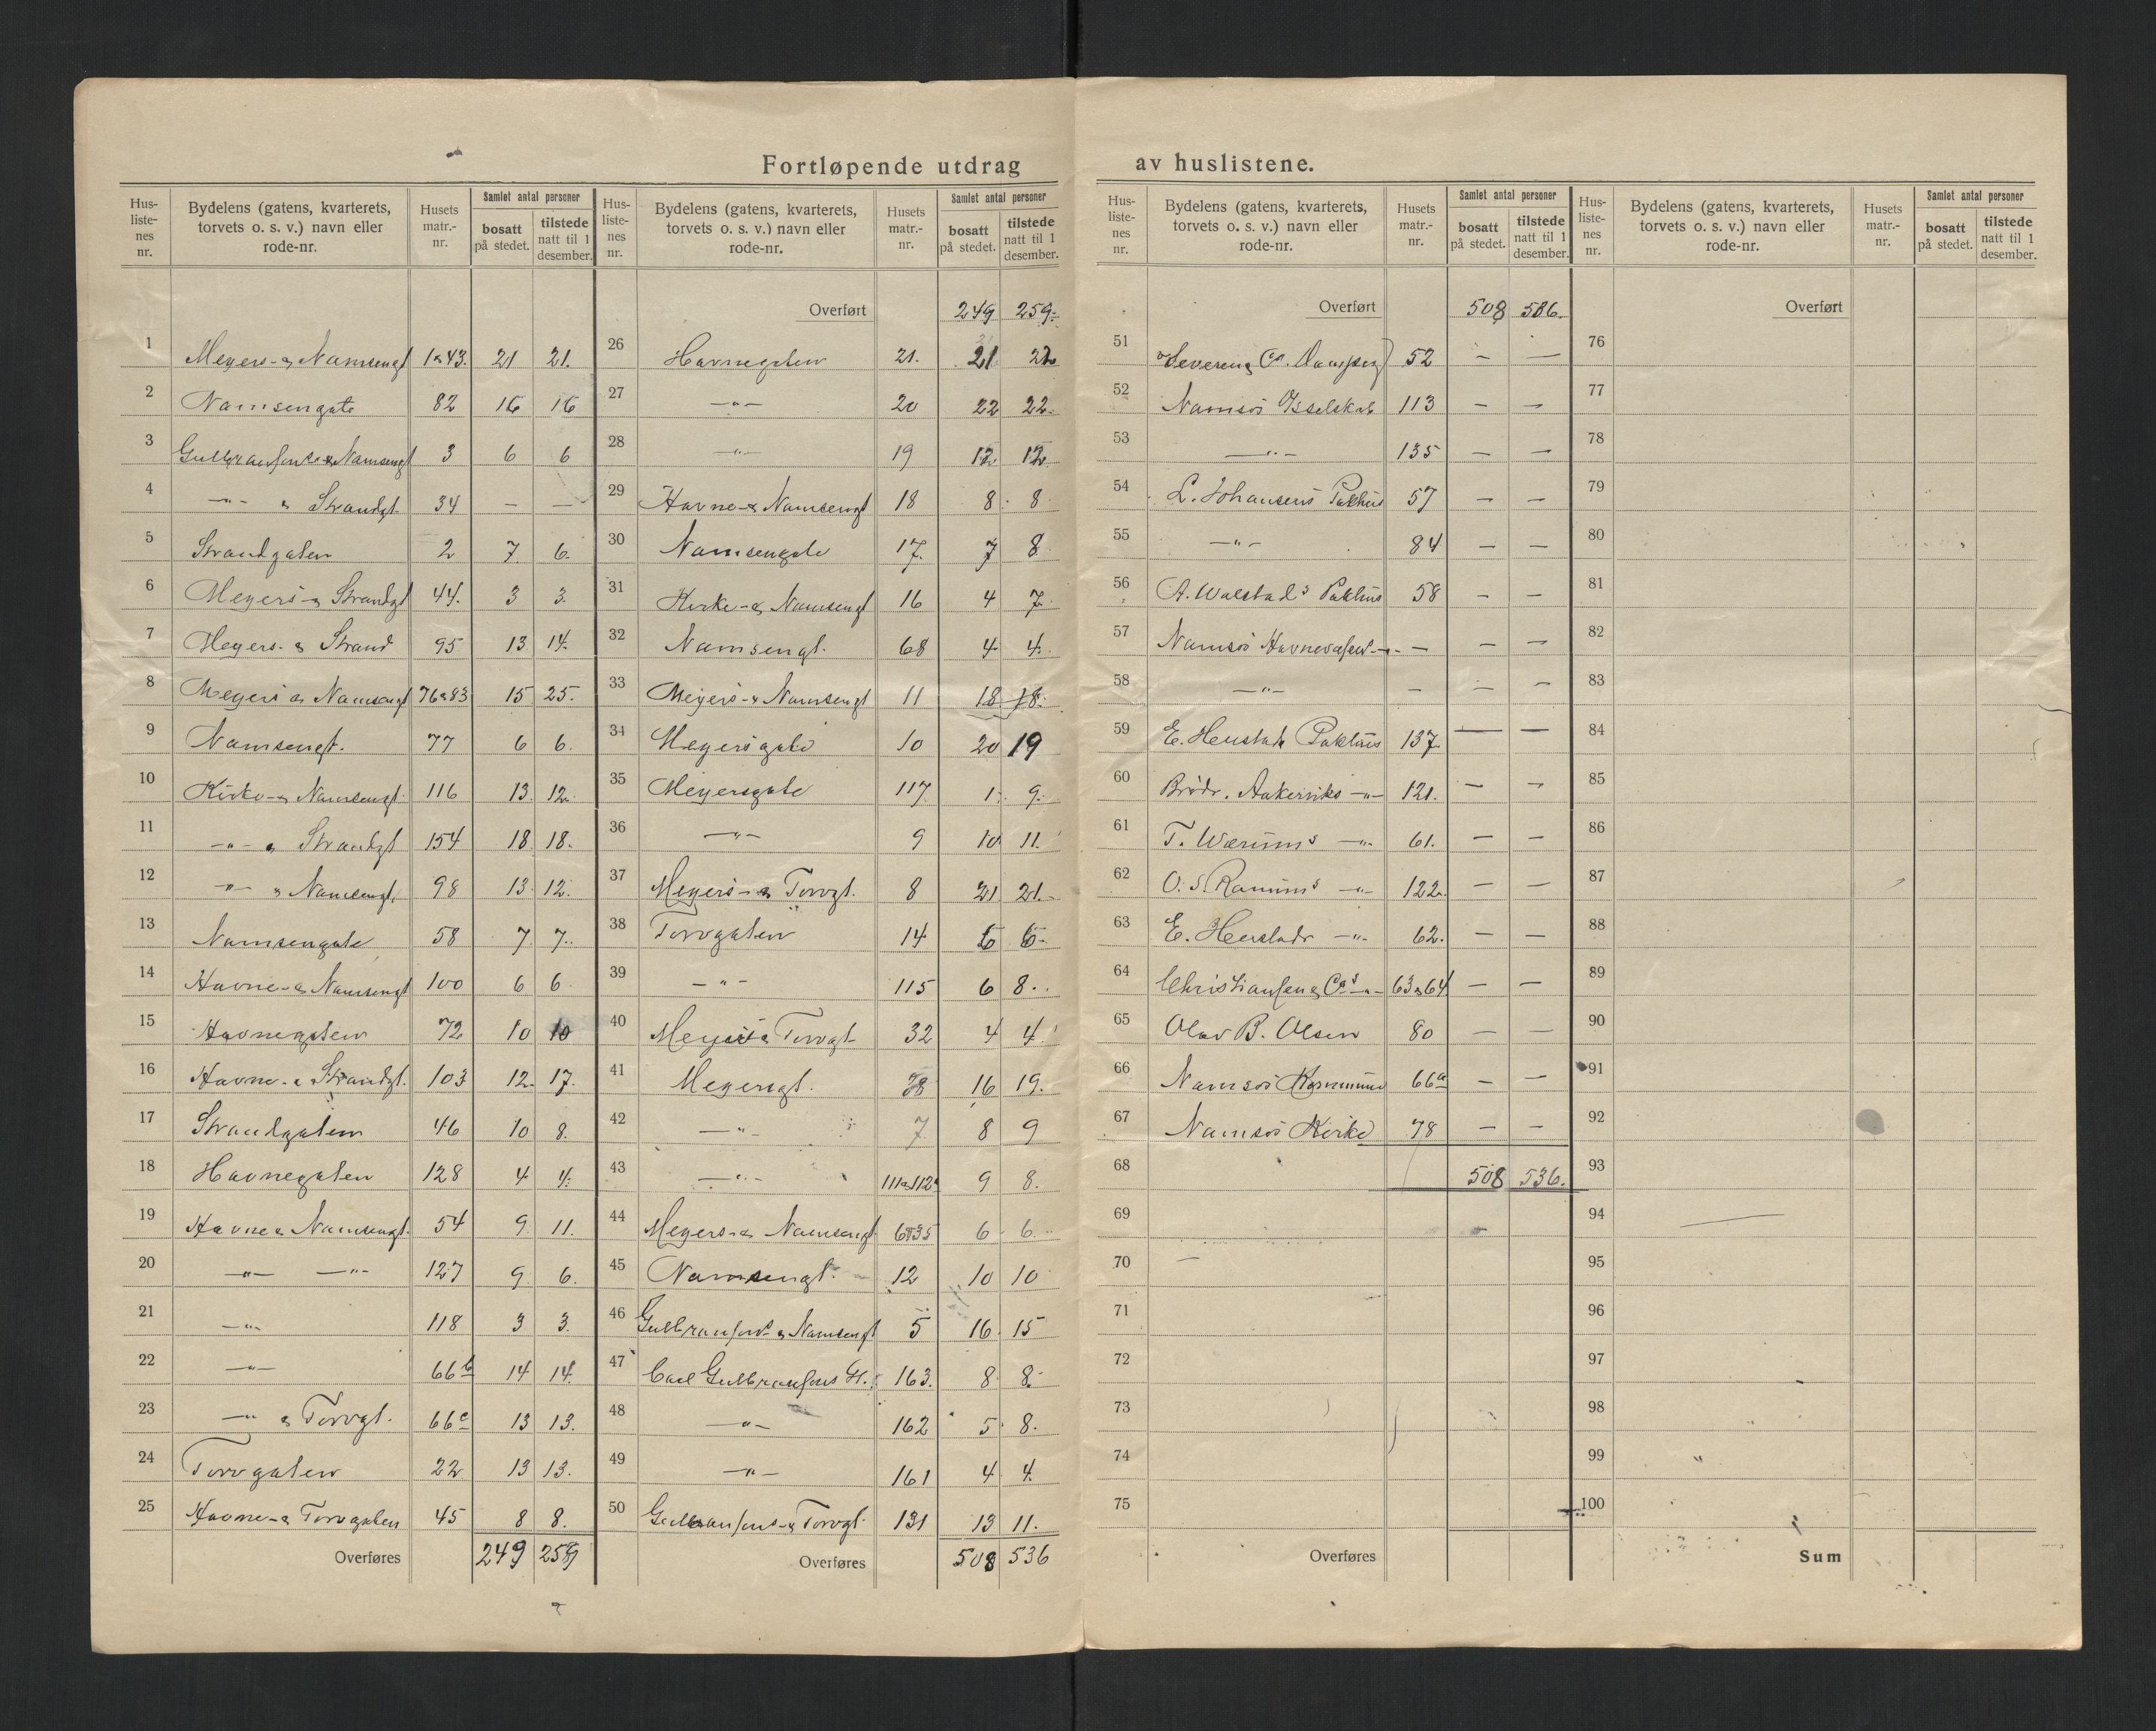 Fortløpende utdrag av huslistene.
Hus-liste-nes nr. | Bydelens (gatens, kvarterets, torvets o. s. v.) navn eller rode-nr. | Husets matr.-nr. | Samlet antal personer bosatt på stedet. | tilstede natt til 1 desember.
1 Meyers- & Namsengt 1 & 43. 21 21.
2 Namsengate 82 16 16
3 Gulbransens & Namsengt 3 6 6
4 -"- & Strandgt. 34 — —
5 Strandgaten 2 7. 6.
6 Meyers- & Strandgt 44. 3 3.
7 Meyers- & Strand 95 13 14.
8 Meyers & Namsengt 76 & 83 15 25.
9 Namsengt. 77 6 6.
10 Kirke- & Namsengt. 116 13. 12.
11 -"- & Strandgt 154 18 18.
12 -"- & Namsengt. 98 13 12.
13 Namsengate 58 7. 7.
14 Havne- & Namsengt 100 6 6.
15 Havnegaten 72 10 10
16 Havne- & Strandgt. 103 12. 17.
17 Strandgaten 46 10 8.
18 Havnegaten 128 4 4.
19 Havne & Namsengt. 54 9 11.
20 -"- -"- 127 9. 6.
21 -"- 118 3 3.
22 -"- 66b 14 14.
23 -"- & Torvgt. 66c 13 13.
24 Torvgaten 22 13 13.
25 Havne- & Torvgaten 45 8 8.
Overføres 249 259
Hus-liste-nes nr. | Bydelens (gatens, kvarterets, torvets o. s. v.) navn eller rode-nr. | Husets matr.-nr. | Samlet antal personer bosatt på stedet. | tilstede natt til 1 desember.
Overført 249 259.
26 Havnegaten 21. 21 22
27 -"- 20 22 22.
28 -"- 19 12 12
29 Havne- & Namsengt 18 8. 8
30 Namsengate 17. 7 8
31 Kirke- & Namsengt 16 4 7.
32 Namsengt. 68 4 4.
33 Meyers- & Namsengt 11 18 18.
34 Meyersgate 10 20 19
35 Meyersgate 117 1. 9.
36 -"- 9 10 11.
37 Meyers- & Torvgt. 8 21 21.
38 Torvgaten 14 6 6.
39 -"- 115 6 8.
40 Meyers & Torvgt 32 4 4.
41 Meyersgt. 16 19.
42 -"- 7 8 9
43 -"- 111 & 112 9 8.
44 Meyers- & Namsengt 6 & 35 6 6.
45 Namsengt. 12 10 10
46 Gulbransens & Namsengt 5 16 15
47 Carl Gulbransens Gt. 163. 8 8.
48 -"- 162 5 8.
49 -"- 161 4 4.
50 Gulbransens- & Torvgt. 131 13 11.
Overføres 508 536
Hus-liste-nes nr. | Bydelens (gatens, kvarterets, torvets o. s. v.) navn eller rode-nr. | Husets matr.-nr. | Samlet antal personer bosatt på stedet. | tilstede natt til 1 desember.
Overført 508 536.
51 52 — —
52 Namsos 113 — —
53 -"- 135 — —
54 L. Johansens Pakhus 57 — —
55 -"- 84 — —
56 A. Walstads Pakhus 58 — —
57 Namsos — — —
58 -"- — — —
59 E. Herstads Pakhus 137. — —
60 Brødr. Aakerviks -"- 121. — —
61 T. Wærums -"- 61. — —
62 O. S. Ranums -"- 122. — —
63 E. Herstads -"- 62. — —
64 Christiansen & Cos -"- 63 & 64 — —
65 Olav B. Olsen 80 — —
66 Namsos Kommune 66a — —
67 Namsos Kirke 78 — —
68 508 536.
69
70
71
72
73
74
75
Overføres
Hus-liste-nes nr. | Bydelens (gatens, kvarterets, torvets o. s. v.) navn eller rode-nr. | Husets matr.-nr. | Samlet antal personer bosatt på stedet. | tilstede natt til 1 desember.
Overført
76
77
78
79
80
81
82
83
84
85
86
87
88
89
90
91
92
93
94
95
96
97
98
99
100
Sum